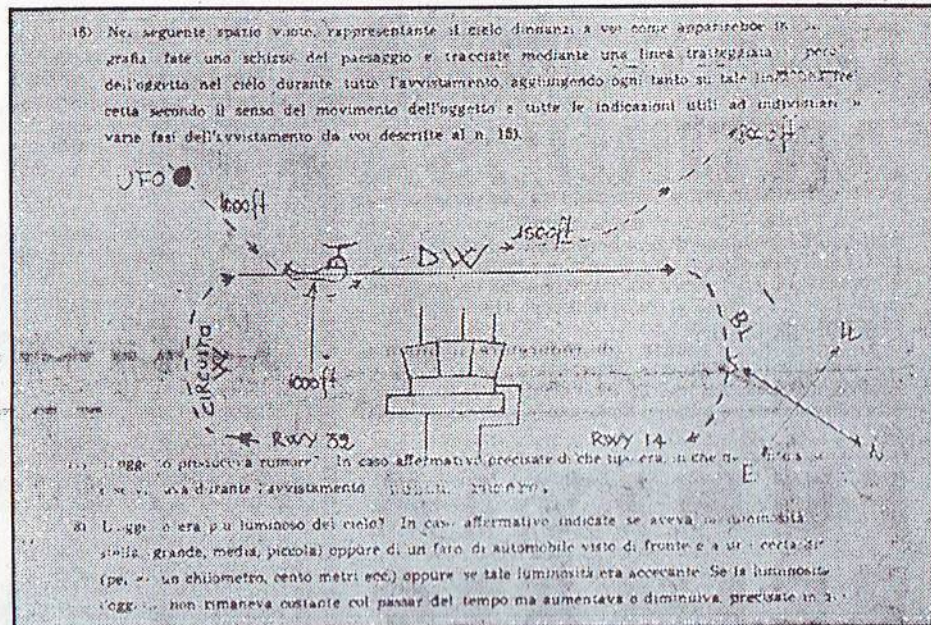 16) Nel seguente spazio vuoto, rappresentante il cielo dinnanzi a voi come apparirebbe in
grafia fate uno schizzo del paesaggio e tracciate mediante una linea tratteggiata il
dell'oggetto nel cielo durante tutto l'avvistamento, aggiungendo ogni tanto su tale
cetta secondo il senso del movimento dell'oggetto e tutte le indicazioni utili ad individuare
varie fasi dell'avvistamento da voi descritte al n. 15).
UFO
1000ft
DW
1500ft
CIRCUITO
W
1000ft
BL
RWY 32
RWY 14
E
N
produceva rumore? In caso affermativo precisate di che tipo era, in che
durante l'avvistamento
era più luminoso del cielo? In caso affermativo indicate se aveva luminosità
stella grande, media, piccola) oppure di un faro di automobile visto di fronte e a
un chilometro, cento metri ecc.) oppure se tale luminosità era accecante. Se la luminosità
non rimaneva costante col passar del tempo ma aumentava o diminuiva, precisate in